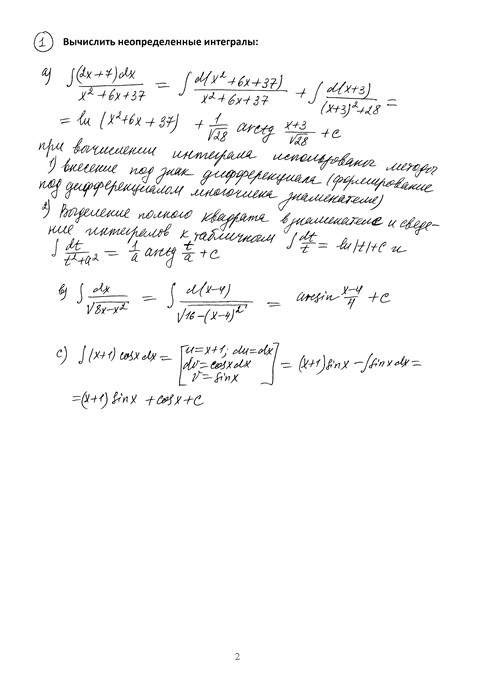 1 Вычислить неопределенные интегралы:
a) ∫(2x+7)dx / x²+6x+37 = ∫ d(x²+6x+37) / x²+6x+37 + ∫ d(x+3) / (x+3)²+28 =
= ln(x²+6x+37) + 1/√28 arctg x+3/√28 + c
при вычислении интеграла использованы методы
1) внесение под знак дифференциала (формирование
под дифференциалом многочлена знаменателе)
2) Выделение полного квадрата в знаменателе и сведе-
ние интегралов к табличном ∫ dt/t = ln|t|+c и
∫ dt / t²+a² = 1/a arctg t/a + c
в) ∫ dx / √8x-x² = ∫ d(x-4) / √16-(x-4)² = arcsin x-4/4 + c
c) ∫(x+1)cosxdx = [u=x+1; du=dx dv=cosxdx v=sinx] = (x+1)sinx - ∫sinxdx =
=(x+1)sinx + cosx + c
2